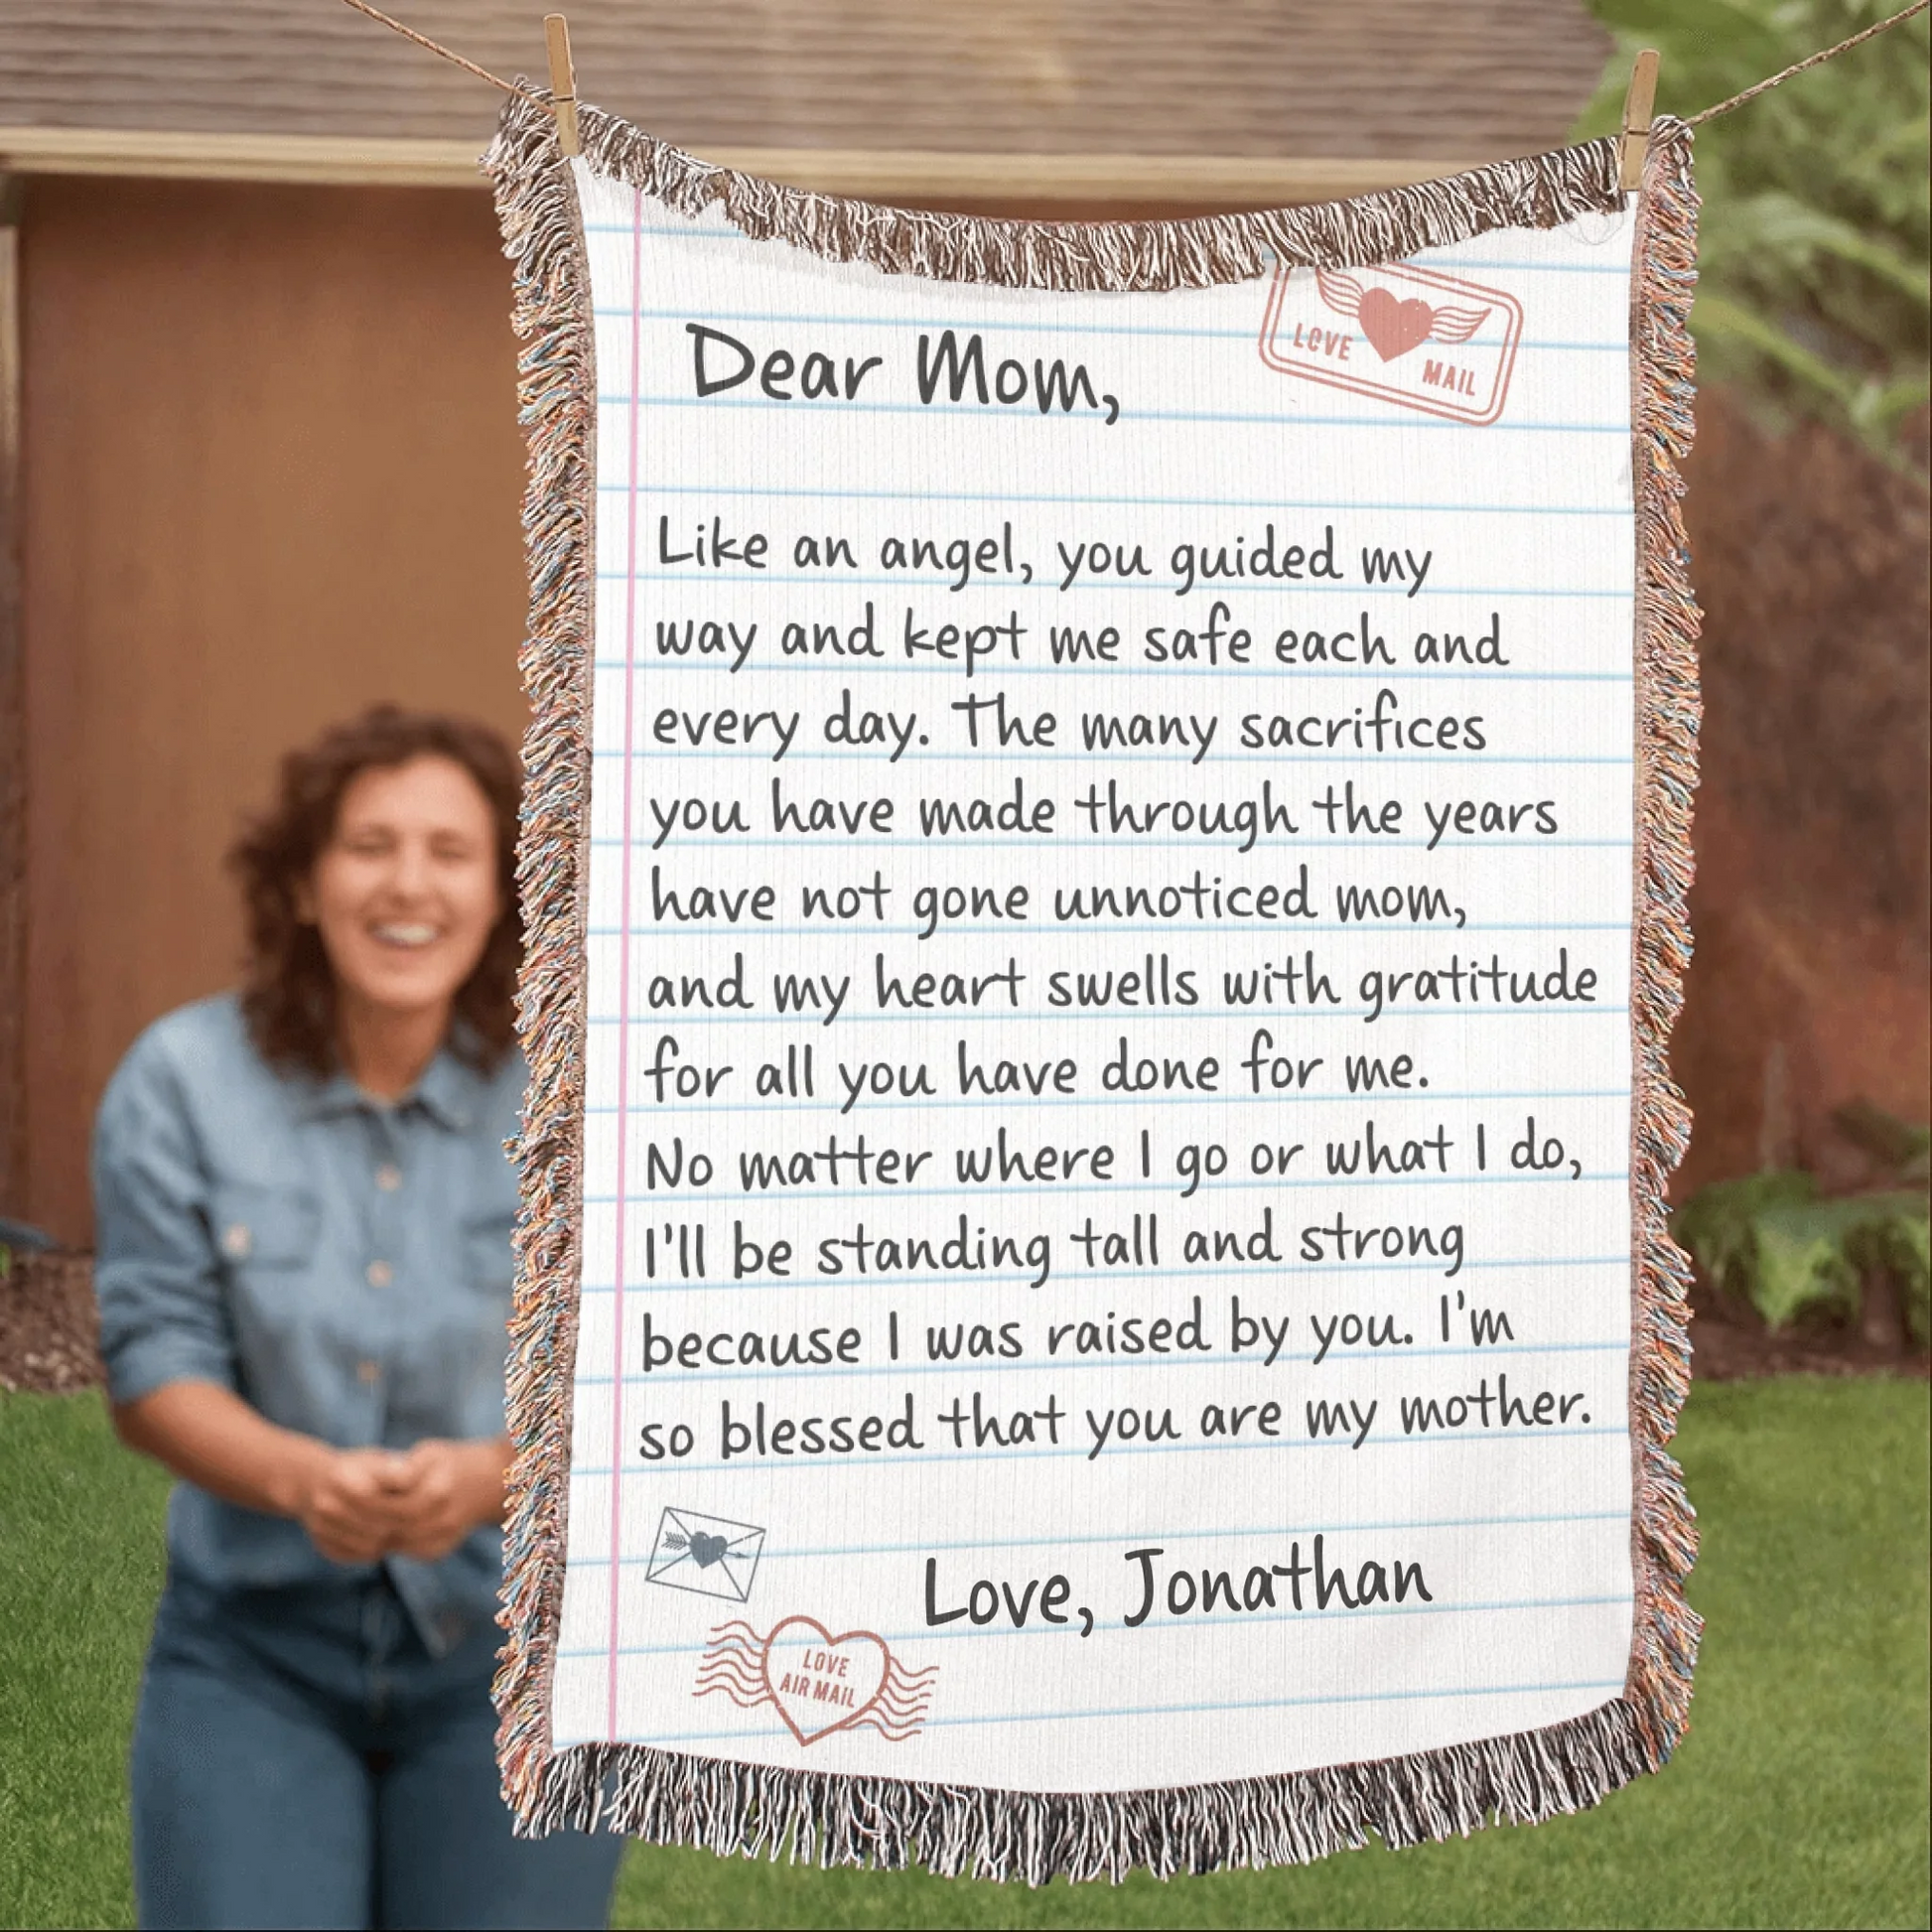 LOVE MAIL
Dear Mom,
Like an angel, you guided my
way and kept me safe each and
every day. The many sacrifices
you have made through the years
have not gone unnoticed mom,
and my heart swells with gratitude
for all you have done for me.
No matter where I go or what I do,
I'll be standing tall and strong
because I was raised by you. I'm
so blessed that you are my mother.
Love, Jonathan
LOVE
AIR MAIL